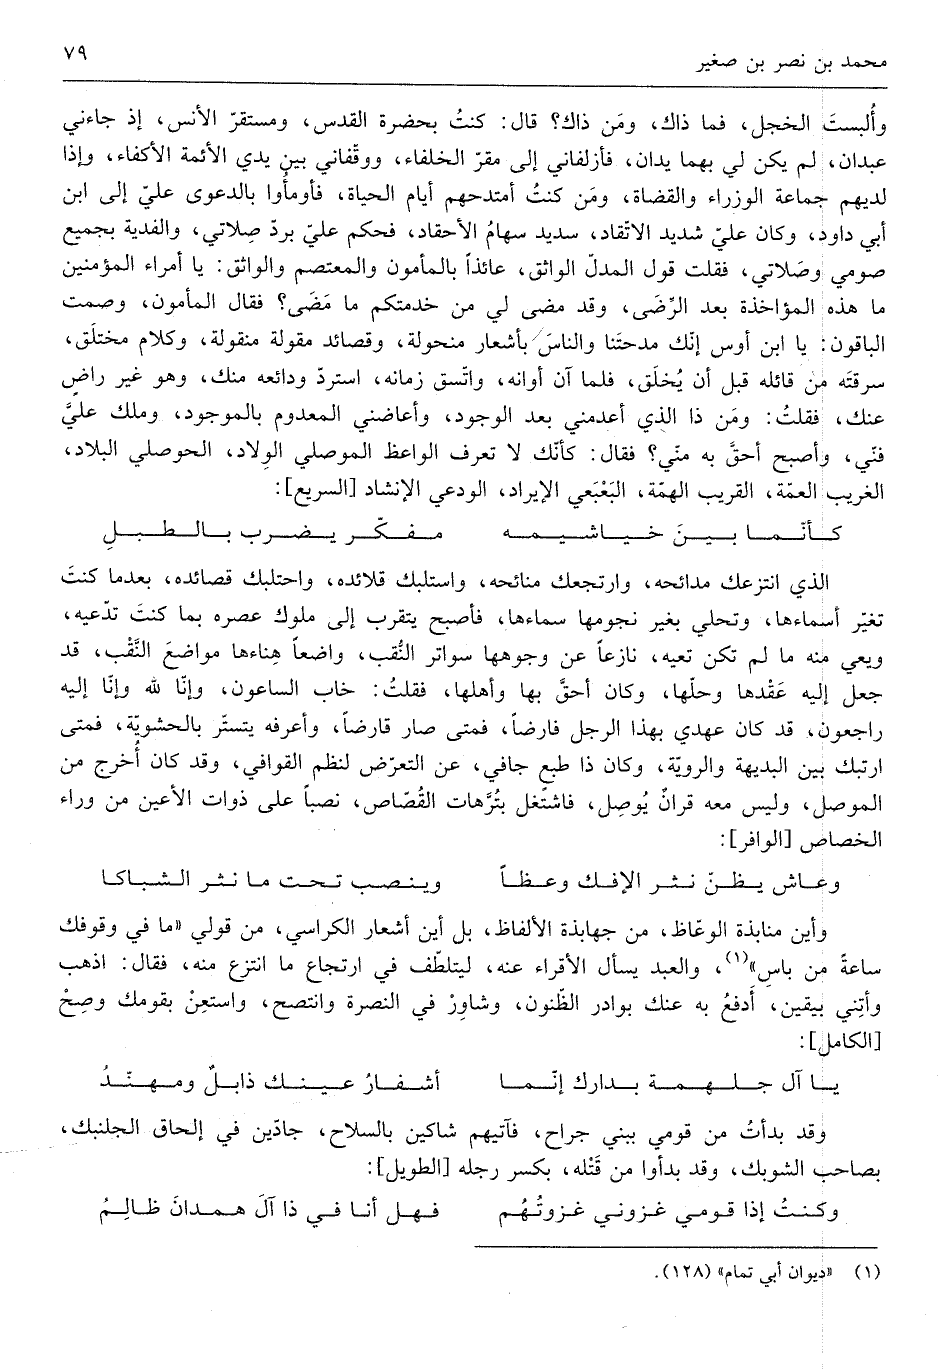 محمد بن نصر بن صغير
٧٩
وأُلبستَ الخجل، فما ذاك، ومَن ذاك؟ قال: كنتُ بحضرة القدس، ومستقرّ الأنس، إذ جاءني
عبدان، لم يكن لي بهما يدان، فأزلفاني إلى مقرّ الخلفاء، ووقّفاني بين يدي الأئمة الأكفاء، وإذا
لديهم جماعة الوزراء والقضاة، ومَن كنتُ أمتدحهم أيام الحياة، فأومأوا بالدعوى عليّ إلى ابن
أبي داود، وكان عليّ شديد الاتّقاد، سديد سهامُ الأحقاد، فحكم عليّ بردّ صِلاتي، والفدية بجميع
صومي وصَلاتي، فقلت قول المدلّ الواثق، عائذاً بالمأمون والمعتصم والواثق: يا أمراء المؤمنين
ما هذه المؤاخذة بعد الرِّضَى، وقد مضى لي من خدمتكم ما مَضَى؟ فقال المأمون، وصمت
الباقون: يا ابن أوس إنّك مدحتَنا والناسَ بأشعار منحولة، وقصائد مقولة منقولة، وكلام مختلَق،
سرقتَه من قائله قبل أن يُخلَق، فلما آن أوانه، واتّسق زمانه، استردّ ودائعه منك، وهو غير راضٍ
عنك، فقلتُ: ومَن ذا الذي أعدمني بعد الوجود، وأعاضني المعدوم بالموجود، وملك عليَّ
فنّي، وأصبح أحقَّ به منّي؟ فقال: كأنّك لا تعرف الواعظ الموصلي الوِلاد، الحوصلي البلاد،
الغريب العمّة، القريب الهمّة، البَعْبَعي الإيراد، الودعي الإنشاد [السريع]:
كأنّما بينَ خياشيمه مفكّر يضرب بالطبلِ
الذي انتزعك مدائحه، وارتجعك منائحه، واستلبك قلائده، واحتلبك قصائده، بعدما كنتَ
تغيّر أسماءها، وتحلي بغير نجومها سماءها، فأصبح يتقرب إلى ملوك عصره بما كنتَ تدّعيه،
ويعي منه ما لم تكن تعيه، نازعاً عن وجوهها سواتر النُّقب، واضعاً هِناءها مواضعَ النَّقْب، قد
جعل إليه عَقْدها وحلّها، وكان أحقَّ بها وأهلها، فقلتُ: خاب الساعون، وإنّا لله وإنّا إليه
راجعون، قد كان عهدي بهذا الرجل فارضاً، فمتى صار قارضاً، وأعرفه يتستّر بالحشويّة، فمتى
ارتبك بين البديهة والرويّة، وكان ذا طبع جافي، عن التعرّض لنظم القوافي، وقد كان أُخرج من
الموصل، وليس معه قرانٌ يُوصِل، فاشتّغل بتُرَّهات القُصّاص، نصباً على ذوات الأعين من وراء
الخصاص [الوافر]:
وعاش يظنّ نثر الإفك وعظاً وينصب تحت ما نثر الشباكا
وأين منابذة الوعّاظ، من جهابذة الألفاظ، بل أين أشعار الكراسي، من قولي «ما في وقوفك
ساعةً من باسِ»(١)، والعبد يسأل الأقراء عنه، ليتلطّف في ارتجاع ما انتزع منه، فقال: اذهب
وأتِني بيقين، أَدفعُ به عنك بوادر الظّنون، وشاوِرْ في النصرة وانتصح، واستعِنْ بقومك وصِحْ
[الكامل]:
يا آل جلهمة بدارك إنّما أشفارُ عينك ذابلٌ ومهنّدُ
وقد بدأتُ من قومي ببني جراح، فآتيهم شاكين بالسلاح، جادّين في إلحاق الجلنبك،
بصاحب الشوبك، وقد بدأوا من قَتْله، بكسر رجله [الطويل]:
وكنتُ إذا قومي غزوني غزوتُهُم فهل أنا في ذا آلَ همدانَ ظالِمُ
(١) «ديوان أبي تمام» (١٢٨).